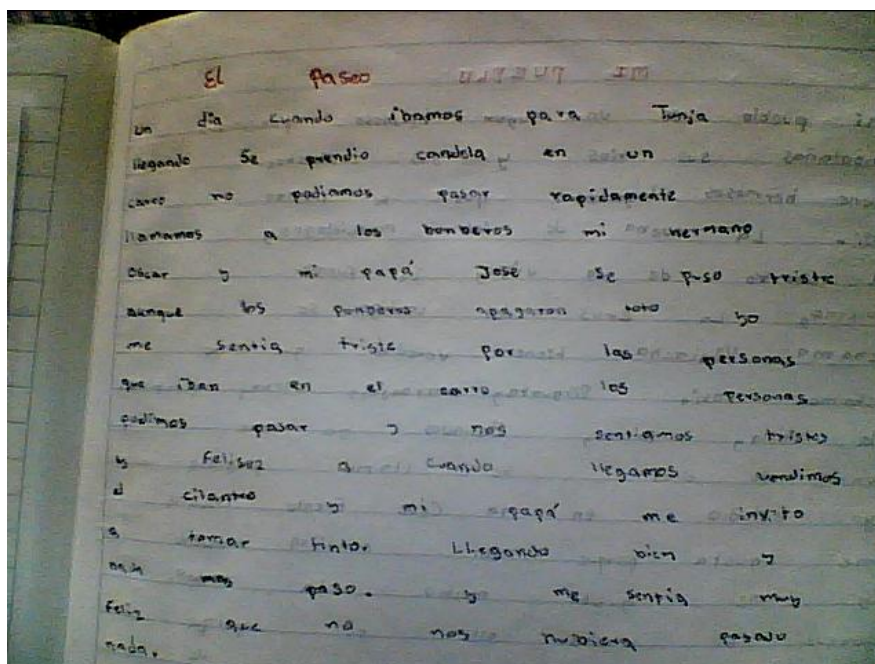 El Paseo
un dia cuando ibamos para Tunja
llegando se prendio candela en un
carro no podiamos pasar rapidamente
llamamos a los bonberos mi hermano
Oscar y mi papá José se puso triste
aunque los bonberos apagaron toto yo
me sentia triste por las personas
que iban en el carro los personas
pudimos pasar y nos sentiamos tristes
y felisez a cuando llegamos vendimos
el cilantro y mi papá me invito
a tomar tinto. Llegando bien y
mas paso. y me sentia muy
feliz que no nos hubiera pasado
nada.